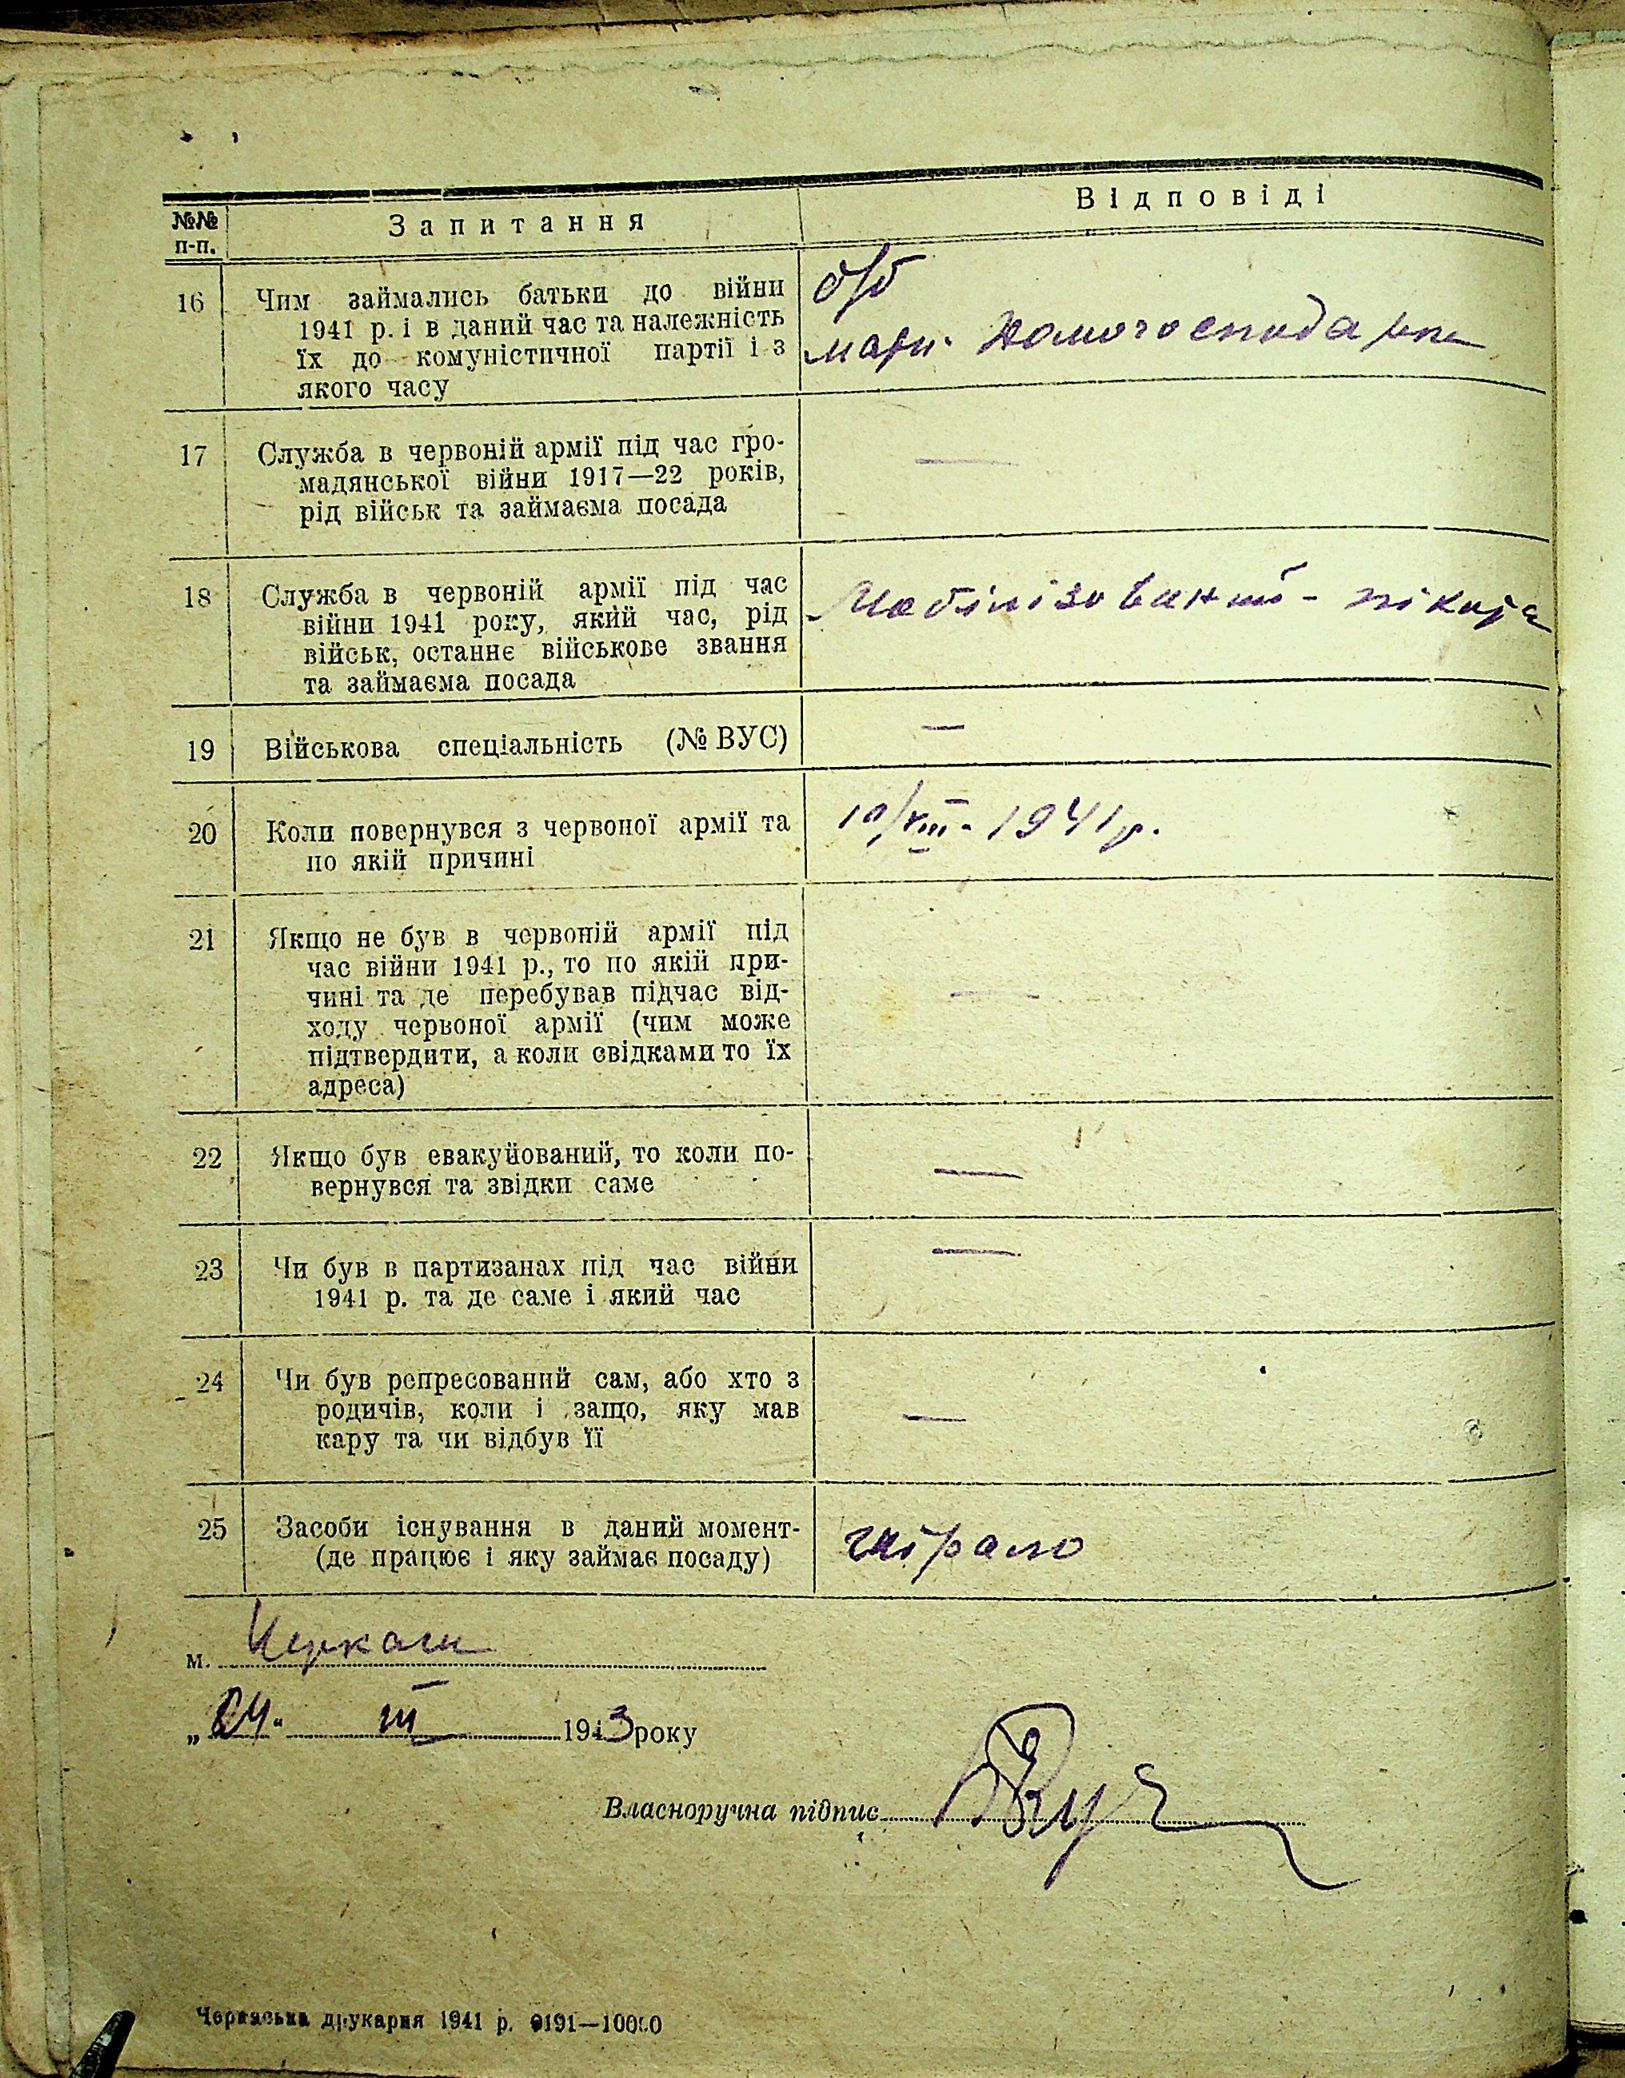 №№ п-п.
Запитання
Відповіді
16
Чим займались батьки до війни
1941 р. і в даний час та належність
їх до комуністичної партії і з
якого часу
б/б
мати домогосподарка
17
Служба в червоній армії під час гро-
мадянської війни 1917—22 років,
рід військ та займаєма посада
—
18
Служба в червоній армії під час
війни 1941 року, який час, рід
військ, останнє військове звання
та займаєма посада
Мобілізований -
19
Військова спеціальність (№ ВУС)
—
20
Коли повернувся з червоної армії та
по якій причині
10/VIII - 1941 р.
21
Якщо не був в червоній армії під
час війни 1941 р., то по якій при-
чині та де перебував підчас від-
ходу червоної армії (чим може
підтвердити, а коли свідками то їх
адреса)
—
22
Якщо був евакуйований, то коли по-
вернувся та звідки саме
—
23
Чи був в партизанах під час війни
1941 р. та де саме і який час
—
24
Чи був репресований сам, або хто з
родичів, коли і защо, яку мав
кару та чи відбув її
—
25
Засоби існування в даний момент-
(де працює і яку займає посаду)
м. Черкаси
„24" III 1943 року
Власноручна підпис
Черкаська друкарня 1941 р. 0191—10000